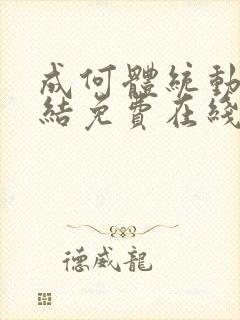 成何體統動
結免費在綫
德威龍